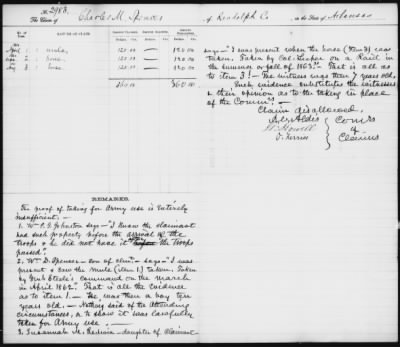 No. 2983.
The Claim of Charles M. Spencer of Randolph Co in the State of Arkansas
NATURE OF CLAIM.
April 1 1 mule, 120.00 — 120.00
2 1 horse, 120.00 — 120.00
3 1 horse 120.00 — 120.00
360.00 360.00
REMARKS.
The proof of taking for Army use is entirely
insufficient. —
1. Wm P. F. Johnston says — "I know the claimant
had such property before the arrival of the
troops & he did not have it after the troops
passed."
2. Wm D. Spencer — son of clmt — says — "I was
present & saw the mule (item 1.) taken. Taken
by Genl Steele's command on the march
in April 1862." That is all the evidence
as to item 1. — He was then a boy ten
years old. — Nothing said of the attending
circumstances, or to show it was lawfully
taken for Army use. —
3. Susannah M. — daughter of Claimant
says — "I was present when the horse (Item 3) was
taken. Taken by Col. Leeper on a Raid in
the summer or fall of 1863." That is all as
to item 3! — The witness was then 7 years old.
Such evidence substitutes the witnesses
& their opinion as to the taking in place
of the Commrs. —
Claim disallowed.
A. O. Aldis
J. B. Howell
O. Ferriss
Comrs
of
Claims